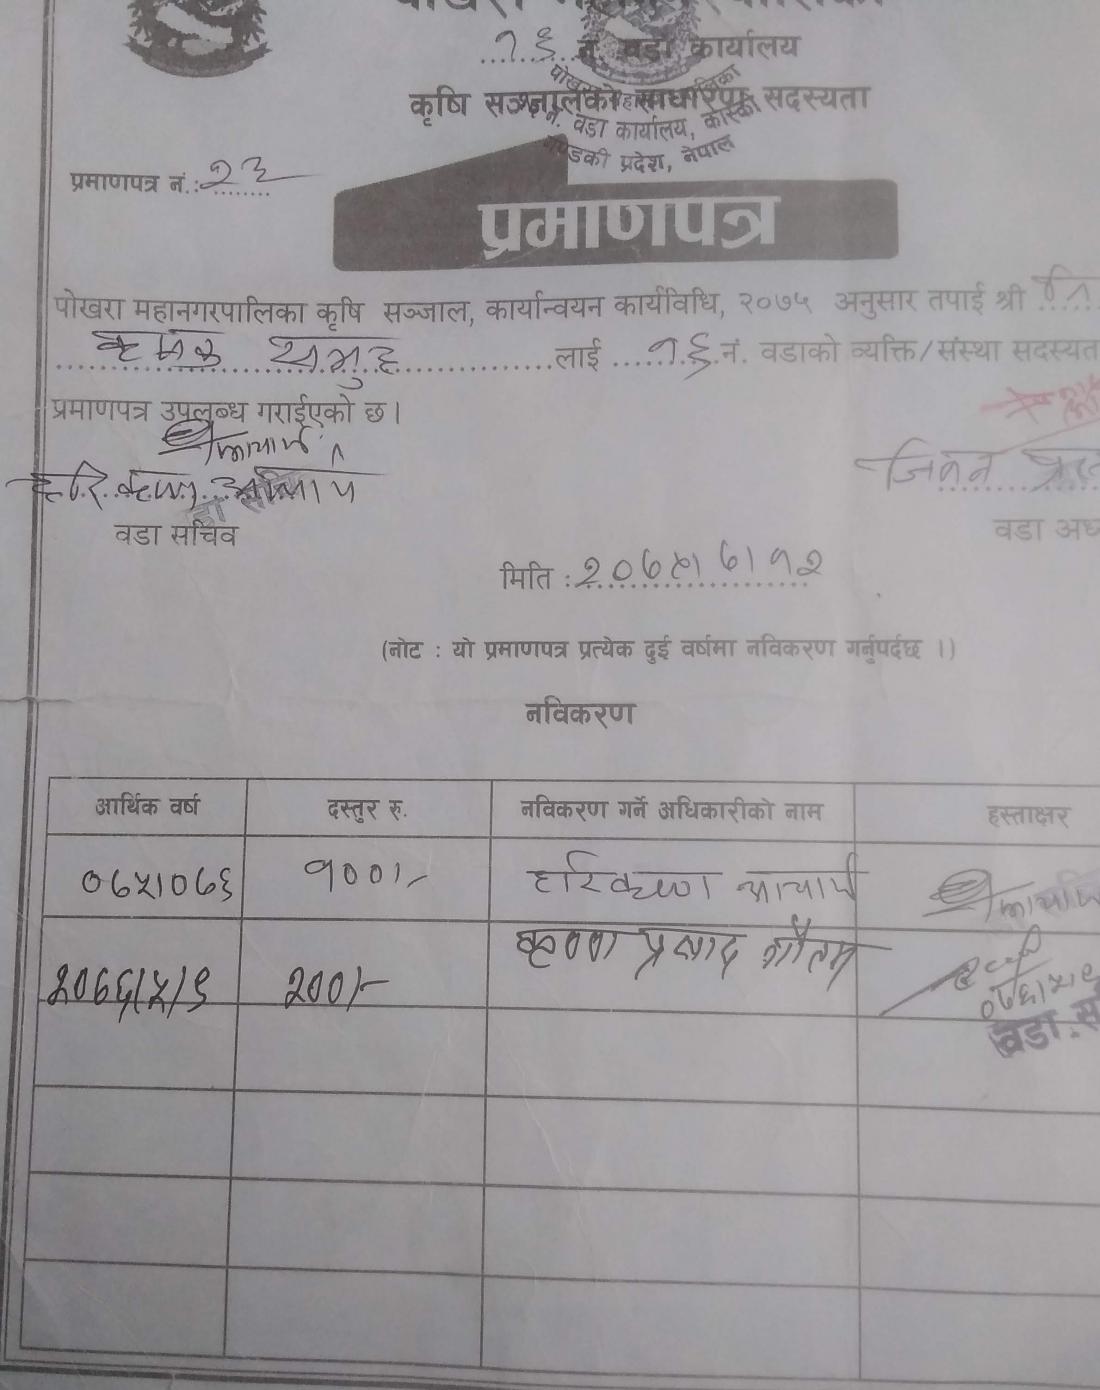 १६ न. वडा कार्यालय
कृषि सञ्जालको साधारण सदस्यता
वडा कार्यालय, कास्की
गण्डकी प्रदेश, नेपाल
प्रमाणपत्र नं.: २३
प्रमाणपत्र
पोखरा महानगरपालिका कृषि सञ्जाल, कार्यान्वयन कार्यविधि, २०७५ अनुसार तपाई श्री
कृषक समुह लाई १६ नं. वडाको व्यक्ति/संस्था सदस्यत
प्रमाणपत्र उपलब्ध गराईएको छ।
हरि कृष्ण आचार्य
वडा सचिव
वडा अध
मिति : २०७५।७।१२
(नोट : यो प्रमाणपत्र प्रत्येक दुई वर्षमा नविकरण गर्नुपर्दछ ।)
नविकरण
आर्थिक वर्ष दस्तुर रु. नविकरण गर्ने अधिकारीको नाम हस्ताक्षर
०७५।०७६ १००।- हरिकृष्ण आचार्य
२०७६/५/९ २००/- कृष्ण प्रसाद गौतम
०७६।५।९
वडा स